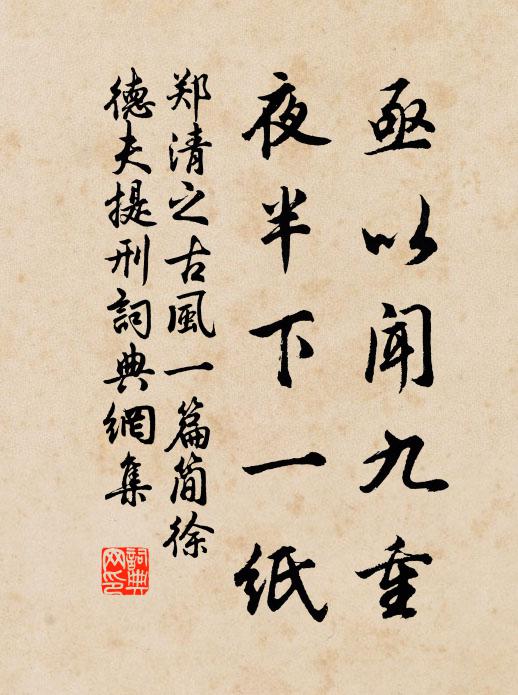 亟以闻九重
夜半下一纸
郑清之古風一篇简徐
德夫提刑詞典網集
詞典网印